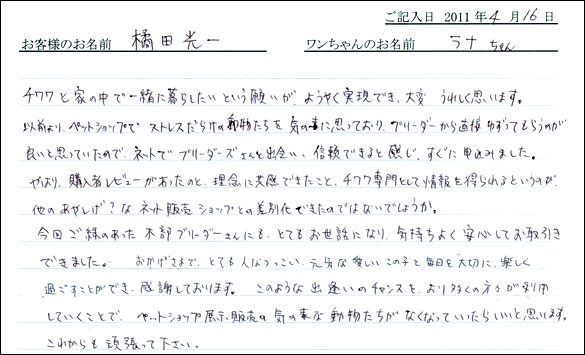 ご記入日 2011年 4月 16日
お客様のお名前 橘田 光一 ワンちゃんのお名前 ラナ ちゃん
チワワと家の中で一緒に暮らしたいという願いが ようやく実現でき、大変 うれしく思います。
以前より、ペットショップで ストレスだらけの動物たちを 気の毒に思っており、ブリーダーから直接ゆずってもらうのが
良いと思っていたので、ネットで ブリーダーズさんと出会い、信頼できると感じ、すぐに申込みました。
やはり、購入者レビューがあったのと、理念に共感できたこと、チワワ専門として情報を得られるというのが、
他のあやしげ?な ネット販売ショップとの差別化できたのではないでしょうか。
今回ご縁のあった 木部ブリーダーさんにも、とてもお世話になり、気持ちよく安心してお取引き
できました。 おかげさまで、とても人なつっこい、元気な愛しいこの子と毎日を大切に、楽しく
過ごすことができ、感謝しております。 このような出逢いのチャンスを、より多くの方々が利用
していくことで、ペットショップ展示販売の気の毒な動物たちがなくなっていったらいいと思います。
これからも頑張って下さい。